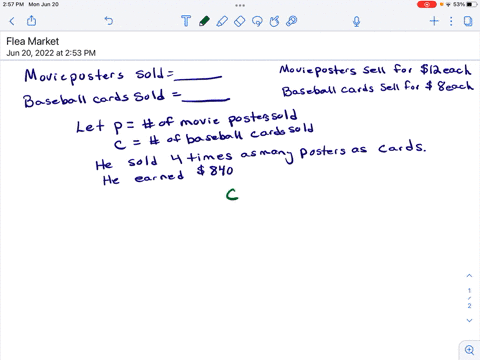 2:57 PM Mon Jun 20
53%
Flea Market
Jun 20, 2022 at 2:53 PM
Movie posters sold = ______ Movie posters sell for $12 each
Baseball cards sold = ______ Baseball cards sell for $8 each
Let p = # of movie posters sold
c = # of baseball cards sold
He sold 4 times as many posters as cards.
He earned $840
C
1
2